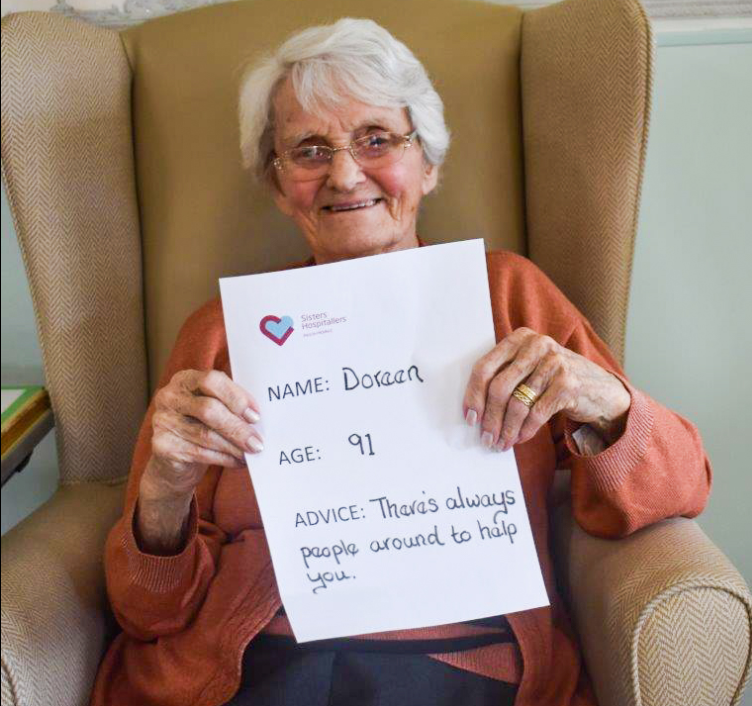 Sisters
Hospitallers
NAME: Doreen
AGE: 91
ADVICE: There's always
people around to help
you.